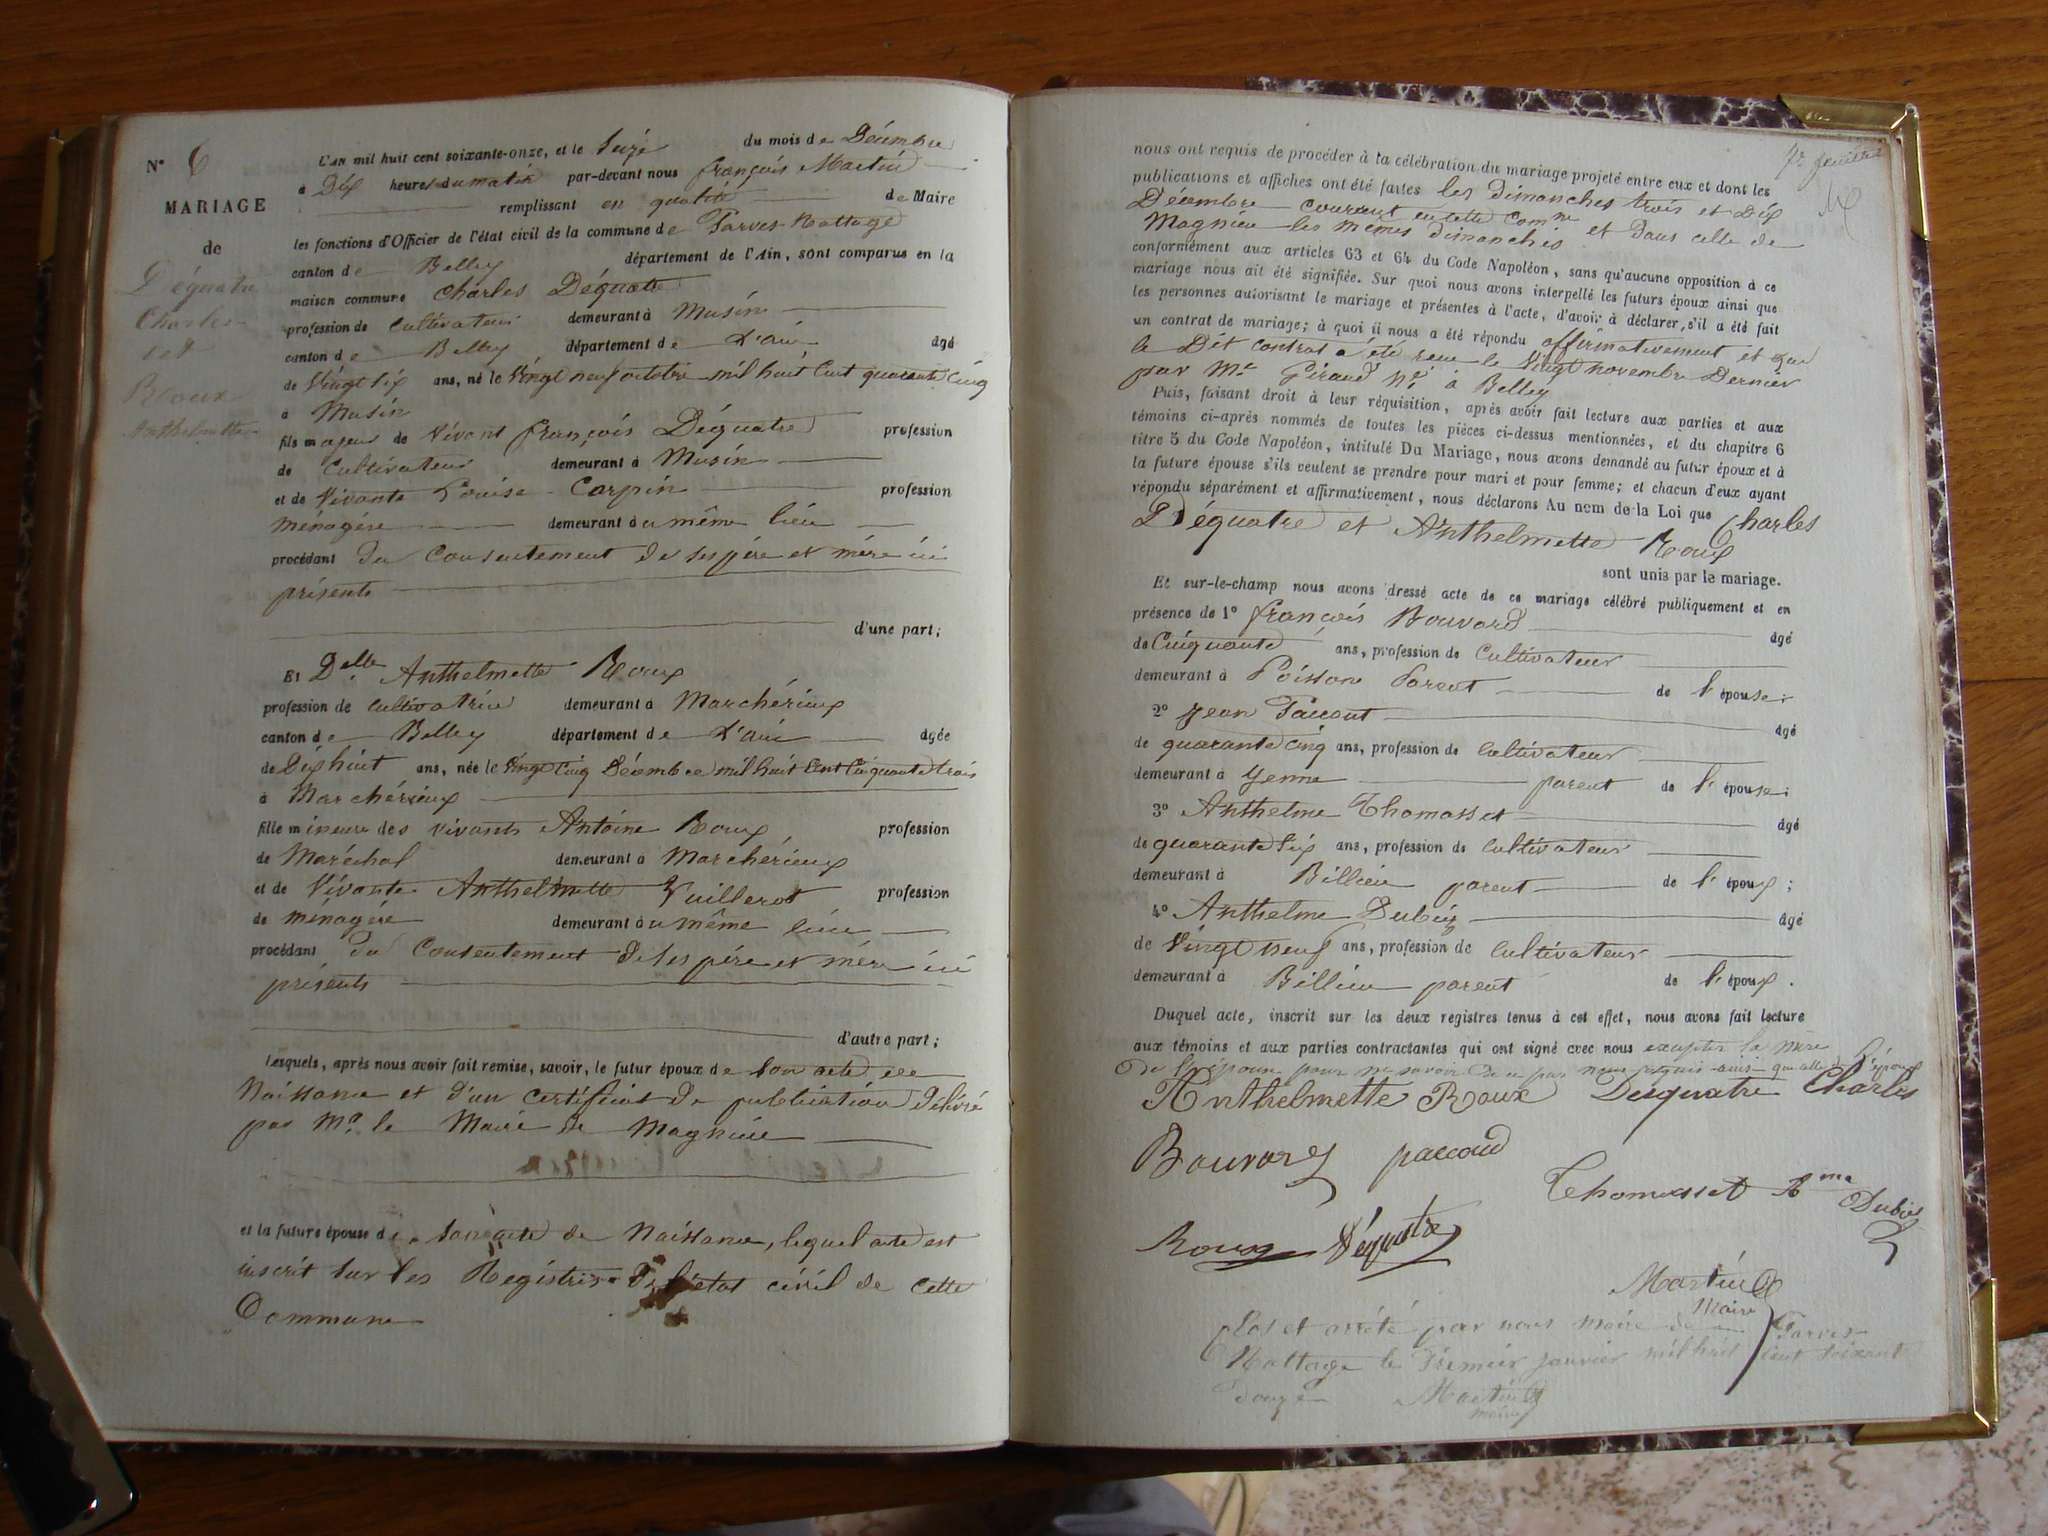 N° 6
MARIAGE
de
Déquatre
Charles
et
Roux
Anthelmette
L'an mil huit cent soixante-onze, et le Seize du mois de Décembre
à Dix heures du matin par-devant nous françois Martin
remplissant en qualité de Maire
les fonctions d'Officier de l'état civil de la commune de Parves Nattage
canton de Belley département de l'Ain, sont comparus en la
maison commune Charles Déquatre
profession de Cultivateur demeurant à Musin
canton de Belley département de L'ain âgé
de Vingt six ans, né le Vingt neuf octobre mil huit Cent quarante cinq
à Musin
fils majeur de Vivant françois Déquatre profession
de Cultivateur demeurant à Musin
et de Vivante Louise Carpin profession
ménagère demeurant au même lieu
procédant du Consentement de ses père et mère ici
présents
d'une part;
Et Delle Anthelmette Roux
profession de Cultivatrice demeurant à Marchérieux
canton de Belley département de L'ain âgée
de Dix huit ans, née le Vingt Cinq Décembre mil huit Cent Cinquante trois
à Marchérieux
fille mineure des vivants Antoine Roux profession
de Maréchal demeurant à Marchérieux
et de Vivante Anthelmette Vuillerot profession
de ménagère demeurant au même lieu
procédant du Consentement de ses père et mère ici
présents
d'autre part;
Lesquels, après nous avoir fait remise, savoir, le futur époux de Son acte de
Naissance et d'un certificat de publication Délivré
par Mr le Maire de Magnieu
et la future épouse de Son acte de Naissance, lequel acte est
inscrit Sur les Registres De l'état civil de cette
Commune
7e feuillet
nous ont requis de procéder à la célébration du mariage projeté entre eux et dont les
publications et affiches ont été faites les Dimanches trois et Dix
Décembre courant en cette Comne et Dans celle de
Magnieu les mêmes dimanches
conformément aux articles 63 et 64 du Code Napoléon, sans qu'aucune opposition à ce
mariage nous ait été signifiée. Sur quoi nous avons interpellé les futurs époux ainsi que
les personnes autorisant le mariage et présentes à l'acte, d'avoir à déclarer, s'il a été fait
un contrat de mariage; à quoi il nous a été répondu affirmativement et que
le Dit contrat a été recu le Vingt novembre Dernier
par Me Giraud Nre à Belley
Puis, faisant droit à leur réquisition, après avoir fait lecture aux parties et aux
témoins ci-après nommés de toutes les pièces ci-dessus mentionnées, et du chapitre 6
titre 5 du Code Napoléon, intitulé Du Mariage, nous avons demandé au futur époux et à
la future épouse s'ils veulent se prendre pour mari et pour femme; et chacun d'eux ayant
répondu séparément et affirmativement, nous déclarons Au nom de la Loi que Charles
Déquatre et Anthelmette Roux
sont unis par le mariage.
Et sur-le-champ nous avons dressé acte de ce mariage célébré publiquement et en
présence de 1° françois Bouvard âgé
de Cinquante ans, profession de Cultivateur
demeurant à Poisson Parent de l'épouse;
2° Jean Paccout âgé
de quarante cinq ans, profession de Cultivateur
demeurant à Yenne parent de l'épouse;
3° Anthelme Thomasset âgé
de quarante six ans, profession de Cultivateur
demeurant à Billieu parent de l'époux;
4° Anthelme Dubois âgé
de Vingt neuf ans, profession de Cultivateur
demeurant à Billieu parent de l'époux.
Duquel acte, inscrit sur les deux registres tenus à cet effet, nous avons fait lecture
aux témoins et aux parties contractantes qui ont signé avec nous excepter la mère
de l'époux pour ne savoir de ce par nous requis ainsi que celle de l'épouse
Anthelmette Roux Dequatre Charles
Bouvard paccoud
Thomasset Ame
Dubois
Roux Déquatre
Martin
Maire
Clos et arrêté par nous maire de Parves
Nattage le Premier janvier mil huit cent Soixante
Douze Martin
maire